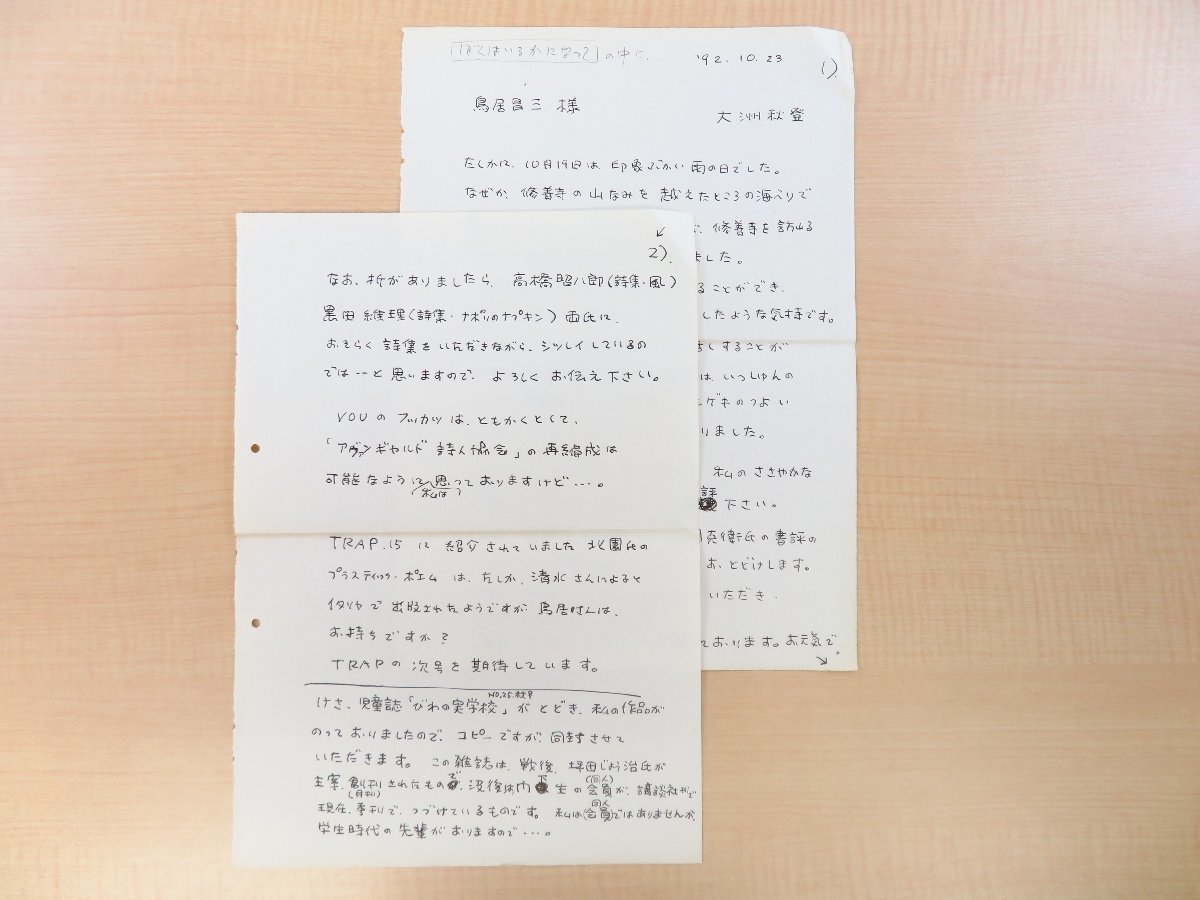 「ぼくはいるかになって」の中に、
'92.10.23
1)
鳥居昌三様
大洲秋登
たしかに、10月19日は、印象ぶかい雨の日でした。
なぜか、修善寺の山なみを越えたところの海べりで
修善寺を訪れる
ました。
ることができ、
したような気持です。
話しすることが
は、いっしゅんの
ゲキのつよい
りました。
私のささやかな
評下さい。
克衛氏の書評の
お、とどけします。
いただき、
ております。お元気で。
2).
なお、折がありましたら、高橋昭八郎(詩集・風)
黒田維理(詩集・ナポリのナプキン)両氏に、
おそらく詩集をいただきながら、シツレイしているの
では…と思いますので、よろしくお伝え下さい。
VOUのフッカツは、ともかくとして、
「アヴァンギャルド詩人協会」の再編成は
可能なように(私は)思っておりますけど…。
TRAP.15に紹介されていました北園氏の
プラスティック・ポエムは、たしか、清水さんによると
イタリヤで出版されたようですが鳥居さんは、
お持ちですか?
TRAPの次号を期待しています。
けさ、児童誌「びわの実学校」NO.25.秋号がとどき、私の作品が
のっておりましたので、コピーですが、同封させて
いただきます。この雑誌は、戦後、坪田じょう治氏が
主宰、創刊(月刊)されたもので、没後は門下生の会員(同人)が、講談社刊で
現在、季刊で、つづけているものです。私は会員(同人)ではありませんが、
学生時代の先輩がおりますので…。